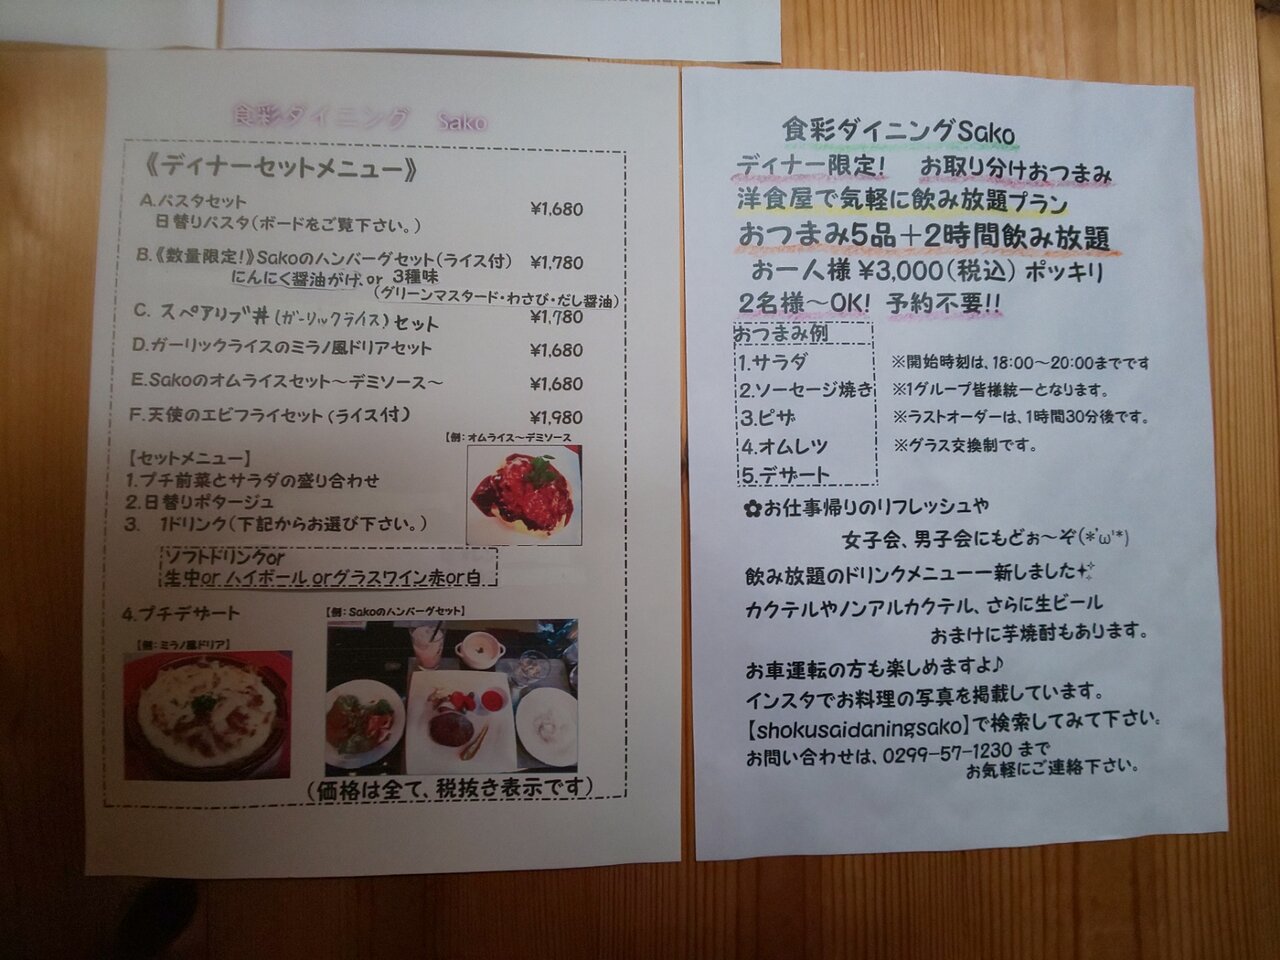 食彩ダイニング Sako
《ディナーセットメニュー》
A.パスタセット ¥1,680
日替りパスタ(ボードをご覧下さい。)
B.《数量限定!》Sakoのハンバーグセット(ライス付) ¥1,780
にんにく醤油がけ、or 3種味
(グリーンマスタード・わさび・だし醤油)
C. スペアリブ丼(ガーリックライス)セット ¥1,780
D.ガーリックライスのミラノ風ドリアセット ¥1,680
E.Sakoのオムライスセット～デミソース～ ¥1,680
F.天使のエビフライセット(ライス付) ¥1,980
【例:オムライス～デミソース
【セットメニュー】
1.プチ前菜とサラダの盛り合わせ
2.日替りポタージュ
3. 1ドリンク(下記からお選び下さい。)
ソフトドリンクor
生中or ハイボール orグラスワイン赤or白
4.プチデザート
【例:Sakoのハンバーグセット】
【例:ミラノ風ドリア】
(価格は全て、税抜き表示です)
食彩ダイニングSako
ディナー限定! お取り分けおつまみ
洋食屋で気軽に飲み放題プラン
おつまみ5品+2時間飲み放題
お一人様¥3,000(税込) ポッキリ
2名様～OK! 予約不要!!
おつまみ例
1.サラダ
2.ソーセージ焼き
3.ピザ
4.オムレツ
5.デザート
※開始時刻は、18:00～20:00までです
※1グループ皆様統一となります。
※ラストオーダーは、1時間30分後です。
※グラス交換制です。
✿お仕事帰りのリフレッシュや
女子会、男子会にもどぉ～ぞ(*'ω'*)
飲み放題のドリンクメニュー一新しました✨
カクテルやノンアルカクテル、さらに生ビール
おまけに芋焼酎もあります。
お車運転の方も楽しめますよ♪
インスタでお料理の写真を掲載しています。
【shokusaidaningsako】で検索してみて下さい。
お問い合わせは、0299-57-1230 まで
お気軽にご連絡下さい。